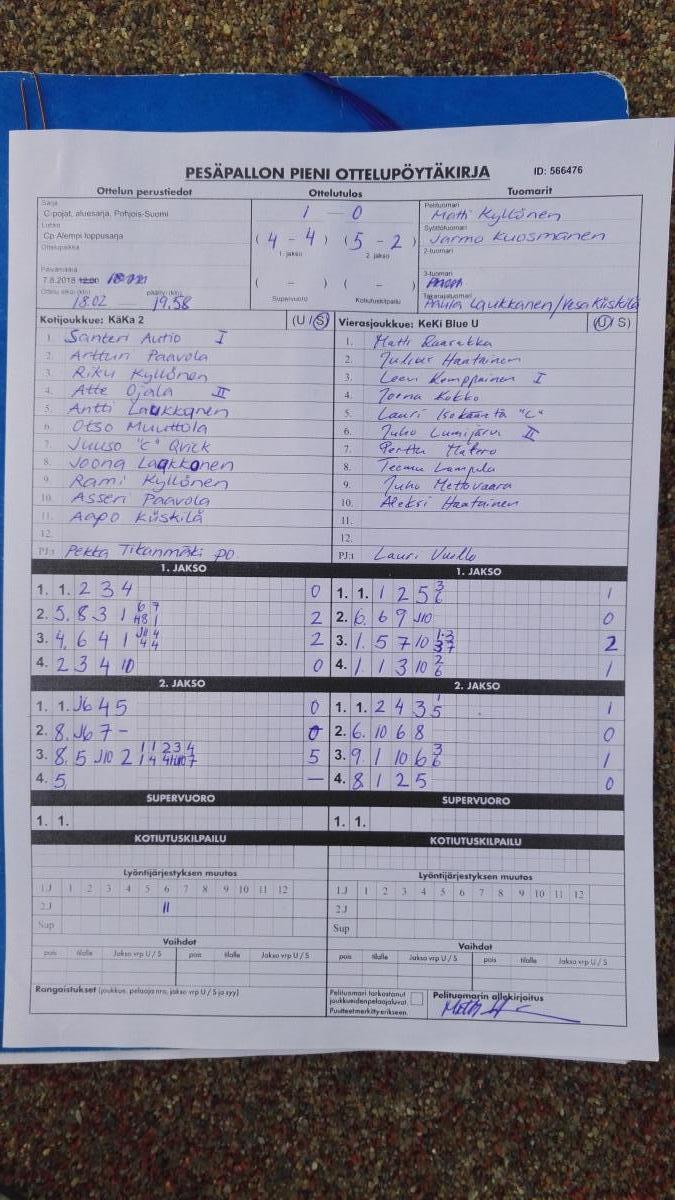 PESÄPALLON PIENI OTTELUPÖYTÄKIRJA ID: 566476
Ottelun perustiedot Ottelutulos Tuomarit
Sarja
C-pojat, aluesarja, Pohjois-Suomi
Lohko
Cp Alempi loppusarja
Ottelupaikka
Päivämäärä
7.8.2018 12:00
18.02 19.58
1 - 0
( 4 - 4 ) ( 5 - 2 )
1. jakso 2. jakso
( - ) ( - )
Supervuoro Kotiutuskilpailu
Pelituomari
Matti Kyllönen
Syöttötuomari
Jarmo Kuosmanen
2-tuomari
3-tuomari
Takarajatuomari
Paula Laukkanen/Vesa Kiiskilä
Kotijoukkue: KäKa 2 (U / S)
1. Santeri Autio I
2. Artturi Paavola
3. Riku Kyllönen
4. Atte Ojala II
5. Antti Laukkanen
6. Otso Muuttola
7. Juuso "C" Qvick
8. Joona Laakkonen
9. Rami Kyllönen
10. Asseri Paavola
11. Aapo Kiiskilä
12.
PJ:1 Pekka Tikanmäki po
Vierasjoukkue: KeKi Blue U (U / S)
1. Matti
2. Julius Hantainen
3. Leevi Komppainen I
4. Joona Kokko
5. Lauri "C"
6. Juho Lumijärvi II
7. Perttu Matero
8. Teemu Lampela
9. Juho Mettovaara
10. Aleksi Hantainen
11.
12.
PJ:1 Lauri
1. JAKSO
1. 1. 2 3 4 0
2. 5. 8 3 1 2
3. 4. 6 4 1 2
4. 2 3 4 10 0
2. JAKSO
1. 1. J6 4 5 0
2. 8. J6 7 - 0
3. 8. 5 J10 2 5
4. 5 —
SUPERVUORO
1. 1.
KOTIUTUSKILPAILU
1. JAKSO
1. 1. 1 2 5 3 6 1
2. 6. 6 9 J10 0
3. 1. 5 7 10 2
4. 1 1 3 10 2 6 1
2. JAKSO
1. 1. 2 4 3 1 5 1
2. 6. 10 6 8 0
3. 9. 1 10 6 3 6 1
4. 8 1 2 5 0
SUPERVUORO
1. 1.
KOTIUTUSKILPAILU
Lyöntijärjestyksen muutos
1.J 1 2 3 4 5 6 7 8 9 10 11 12
2.J 11
Sup
Vaihdot
pois tilalle Jakso vrp U / S pois tilalle Jakso vrp U / S
Rangaistukset (joukkue, pelaaja nro, jakso vrp U / S ja syy)
Lyöntijärjestyksen muutos
1.J 1 2 3 4 5 6 7 8 9 10 11 12
2.J
Sup
Vaihdot
pois tilalle Jakso vrp U / S pois tilalle Jakso vrp U / S
Pelituomari tarkastanut
joukkueiden pelaajaluvat.
Puutteet merkitty erikseen.
Pelituomarin allekirjoitus